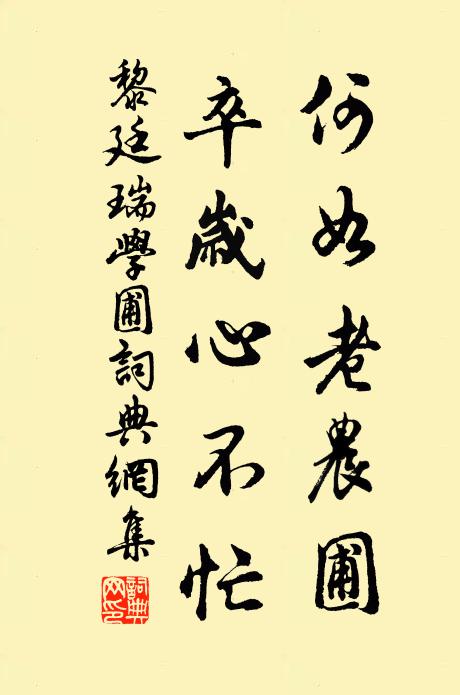 何如老農圃
卒歲心不忙
黎廷瑞學圃詞典網集
詞典網印